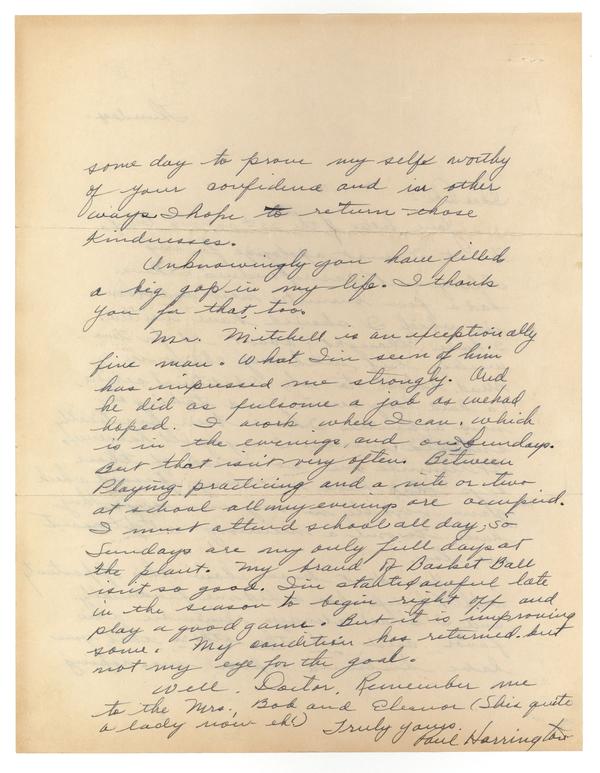 some day to prove my selfe worthy
of your confidence and in other
ways I hope to return those
kindnesses.
Unknowingly you have filled
a big gap in my life. I thank
you for that, too.
Mr. Mitchell is an exceptionally
fine man. What I'm seen of him
has impressed me strongly. And
he did as fulsome a job as we had
hoped. I work when I can, which
is in the evenings and on Sundays.
But that isn't very often. Between
Playing practicing and a nite or two
at school all my evenings are occupied.
I must attend school all day, so
Sundays are my only full days at
the plant. My brand of Basket Ball
isn't so good. I'm started awful late
in the season to begin right off and
play a good game. But it is improving
some. My condition has returned but
not my eye for the goal.
Well, Doctor, Remember me
to the Mrs., Bob and Eleanor (She's quite
a lady now eh!)
Truly yours,
Paul Harrington